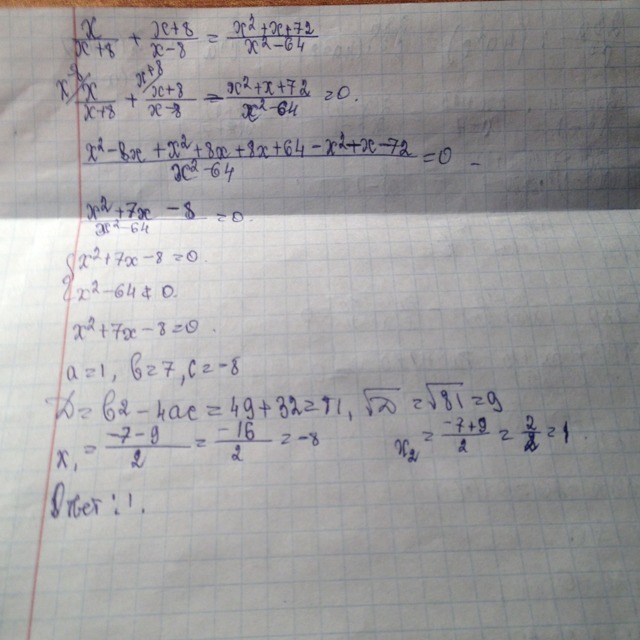 x/(x+8) + (x+8)/(x-8) = (x²+x+72)/(x²-64)
x-8/ x/(x+8) + x+8/ (x+8)/(x-8) = (x²+x+72)/(x²-64) = 0.
(x²-8x+x²+8x+8x+64-x²+x-72)/(x²-64) = 0
(x²+7x-8)/(x²-64) = 0
{ x²+7x-8=0.
x²-64≠0.
x²+7x-8=0.
a=1, b=7, c=-8
D=b2-4ac=49+32=81, √D=√81=9
x₁ = (-7-9)/2 = -16/2 = -8 x₂ = (-7+9)/2 = 2/2 = 1.
Ответ: 1.